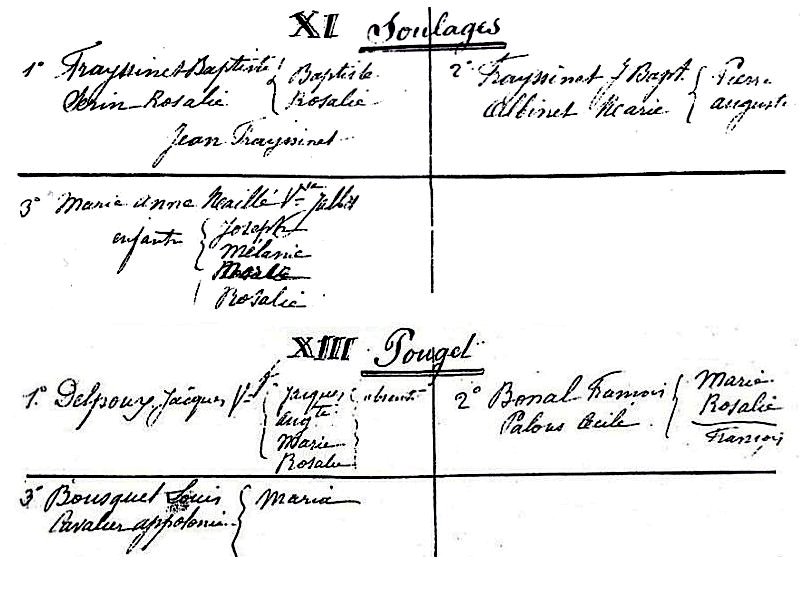 XI Soulages
1° Frayssinet Baptiste { Baptiste
Serin Rosalie Rosalie
Jean Frayssinet
2° Frayssinet J Bapt. { Pierre
Albinet Marie auguste
3° Marie Anne Maillé Vve
enfants { Joseph
Mélanie
Marie
Rosalie
XIII Pouget
1° Delpoux Jacques { Jacques } absents
Augte
Marie
Rosalie
2° Bonal Francois { Marie
Palous Cécile Rosalie
Francois
3° Bousquet Louis { Maria
Cavalier appolonie